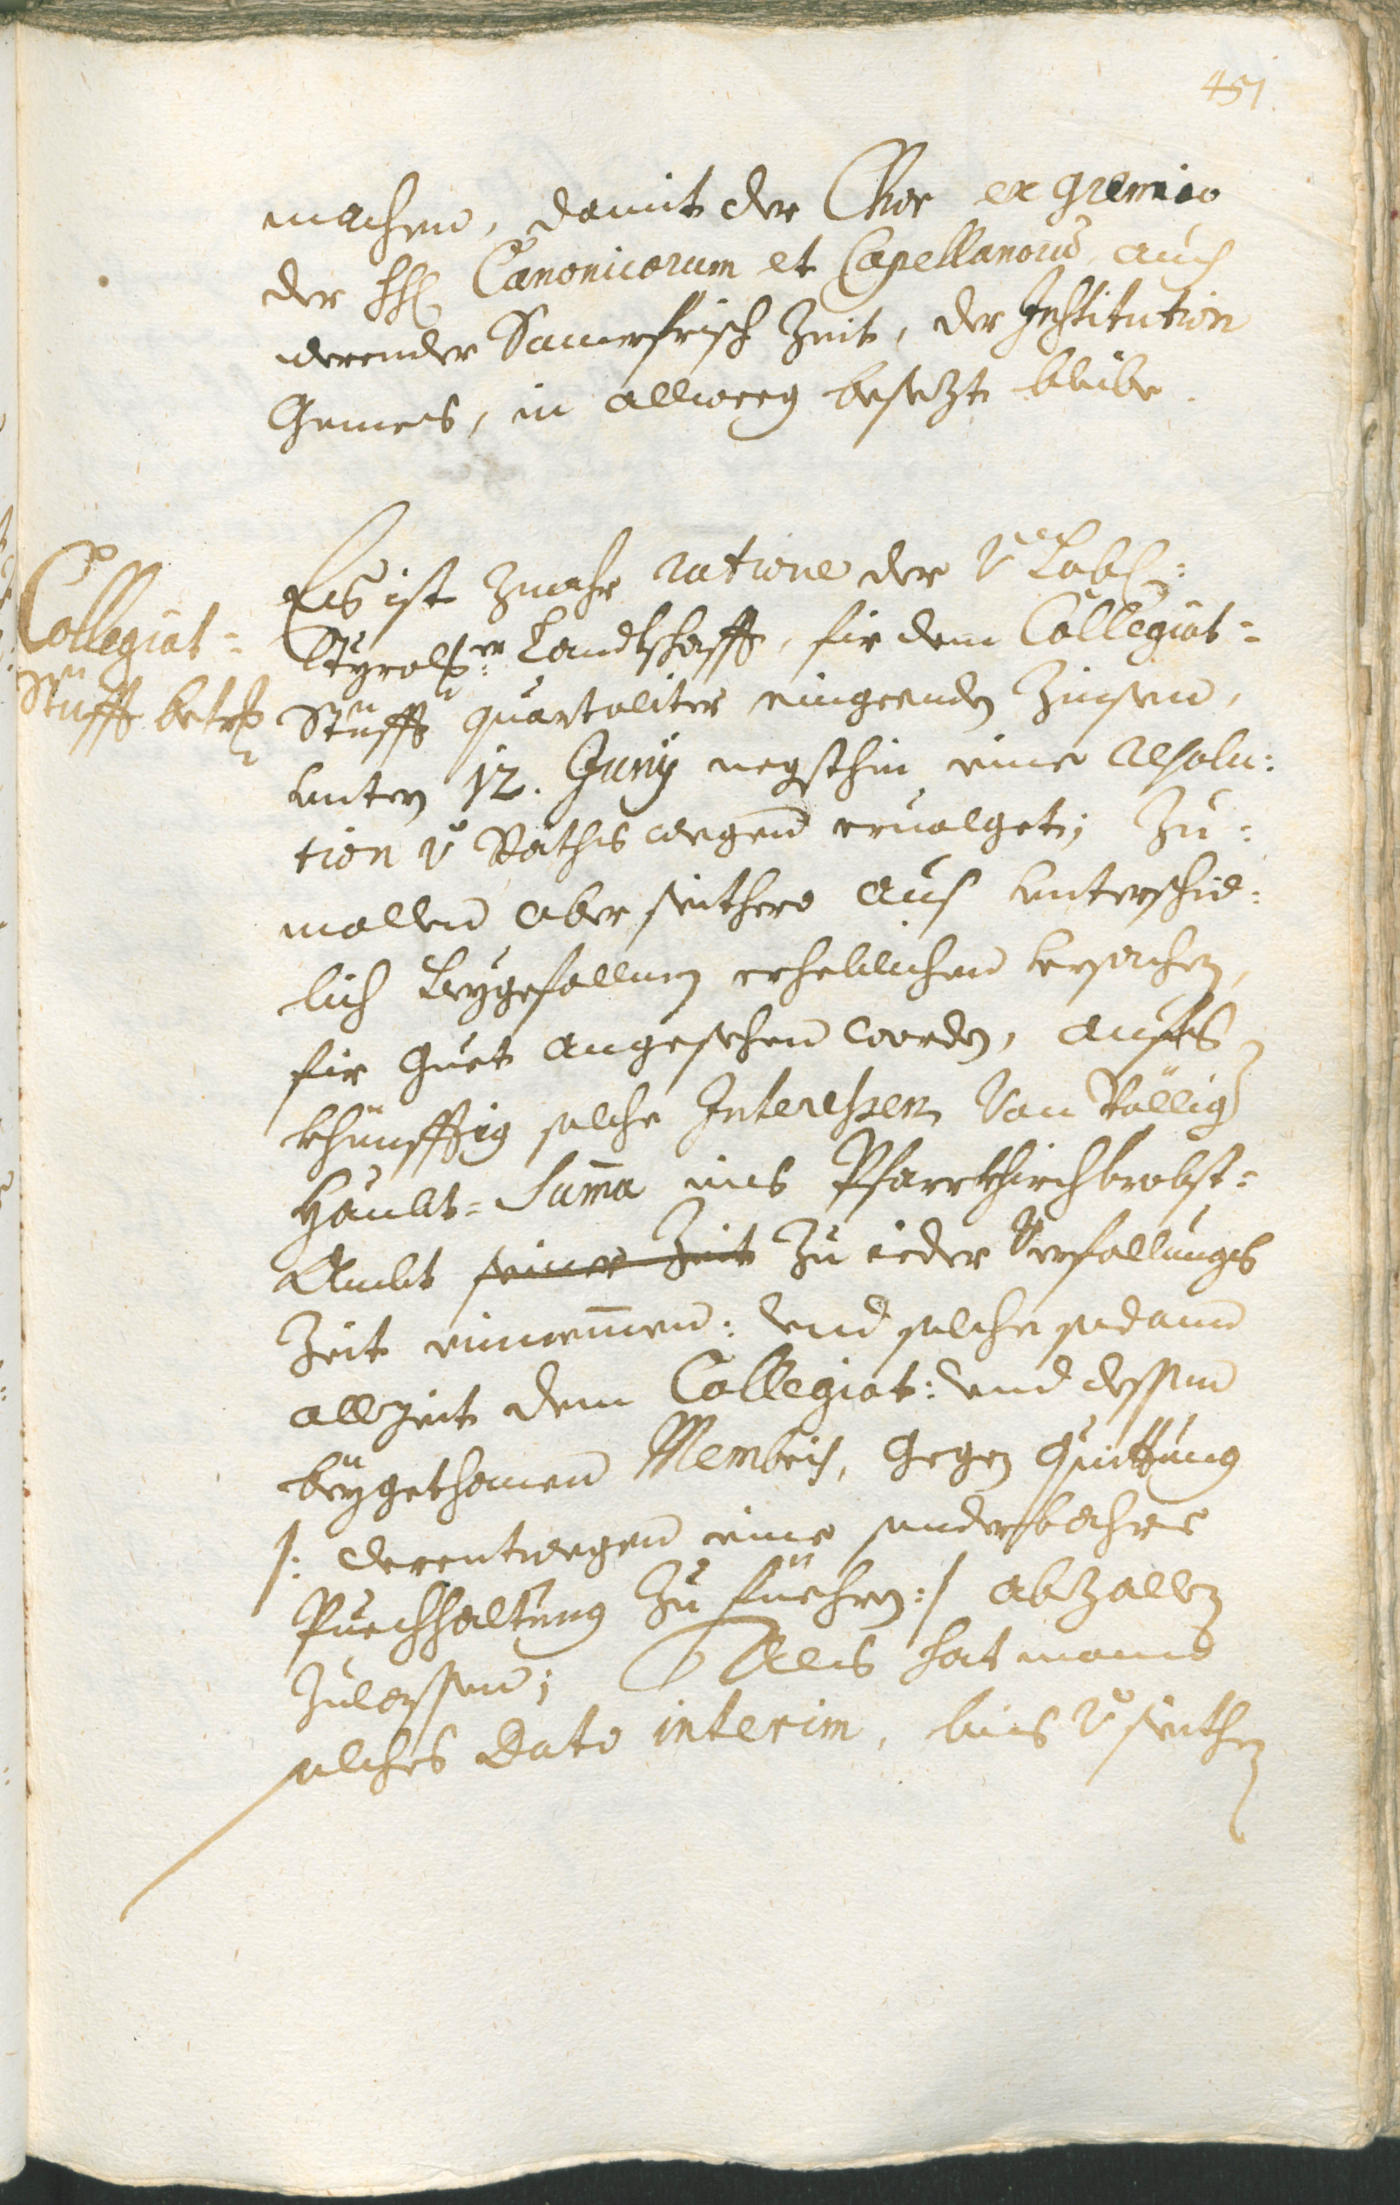 451
machen, damit der Chor ex gremio
der HH: Canonicorum et Capellanorū, auch
werender Sumerfrisch Zeit, der Institution
Gemeß, in allweeg besezt bleibe.
Collegiat=
Stüfft betrf
Es ist zwahr ratione der v Löbl:
Tyrolser Landtschafft, für dem Collegiat=
Stüfft quartaliter eingeenden Zinsen,
unterm 12. Juny negsthin eine resolu:
tion v Raths wegen ervolget; Zu:
mallen aber seithero auß unterschid:
lich beygefallnen erheblichen ursachen,
für guet angesehen worden, aufs
khünfftig solche Interessen von völlig
Haubt=Suma ins Pfarrkhirchbrobst=
Ambt seiner Zeit Zu ieder Verfallungs
Zeit einnemmen: und solche sodann
allzeit dem Collegiat: und dessen
beygethonnen Membris, gegen quittung
/: derentwegen eine sonderbahre
Puechhaltung zu füehren:/ abzallen
zulassen; Alß hat mans
solches Dato interim, biß v seithen